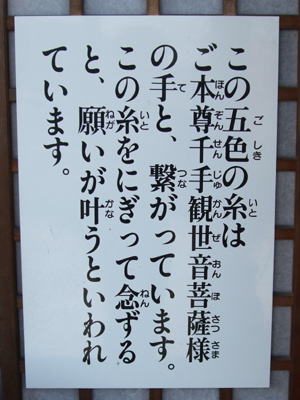 この五色の糸は
ご本尊千手観世音菩薩様
の手と、繋がっています。
この糸をにぎって念ずる
と、願いが叶うといわれ
ています。